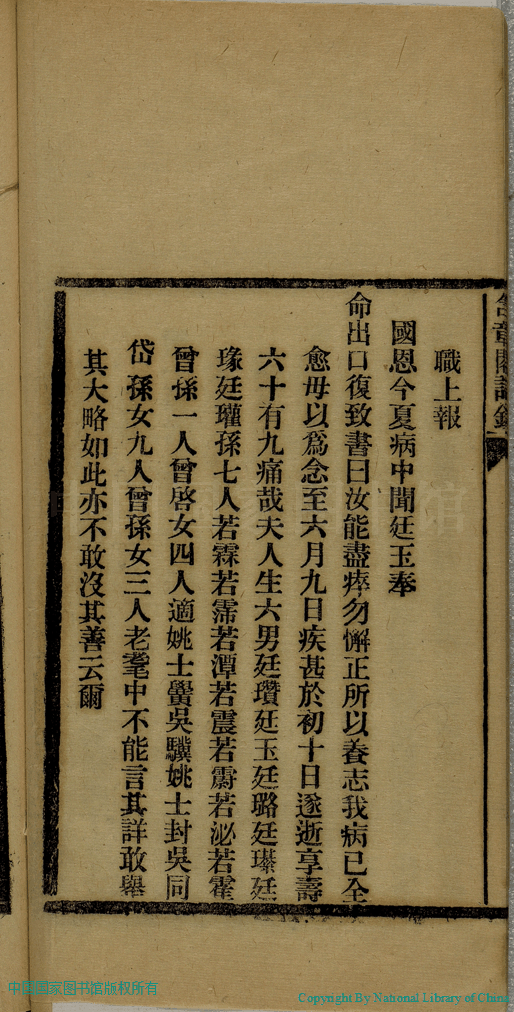 職上報
國恩今夏病中聞廷玉奉
命出口復致書曰汝能盡瘁勿懈正所以養志我病已全
愈毋以爲念至六月九日疾甚於初十日遂逝享壽
六十有九痛哉夫人生六男廷瓚廷玉廷璐廷瑑廷
瑑廷瓘孫七人若霖若霈若潭若震若霨若泌若霍
曾孫一人曾啓女四人適姚士黌吳驥姚士封吳同
岱孫女九人曾孫女三人老耄中不能言其詳敢舉
其大略如此亦不敢沒其善云爾
中国国家图书馆版权所有
Copyright By National Library of China